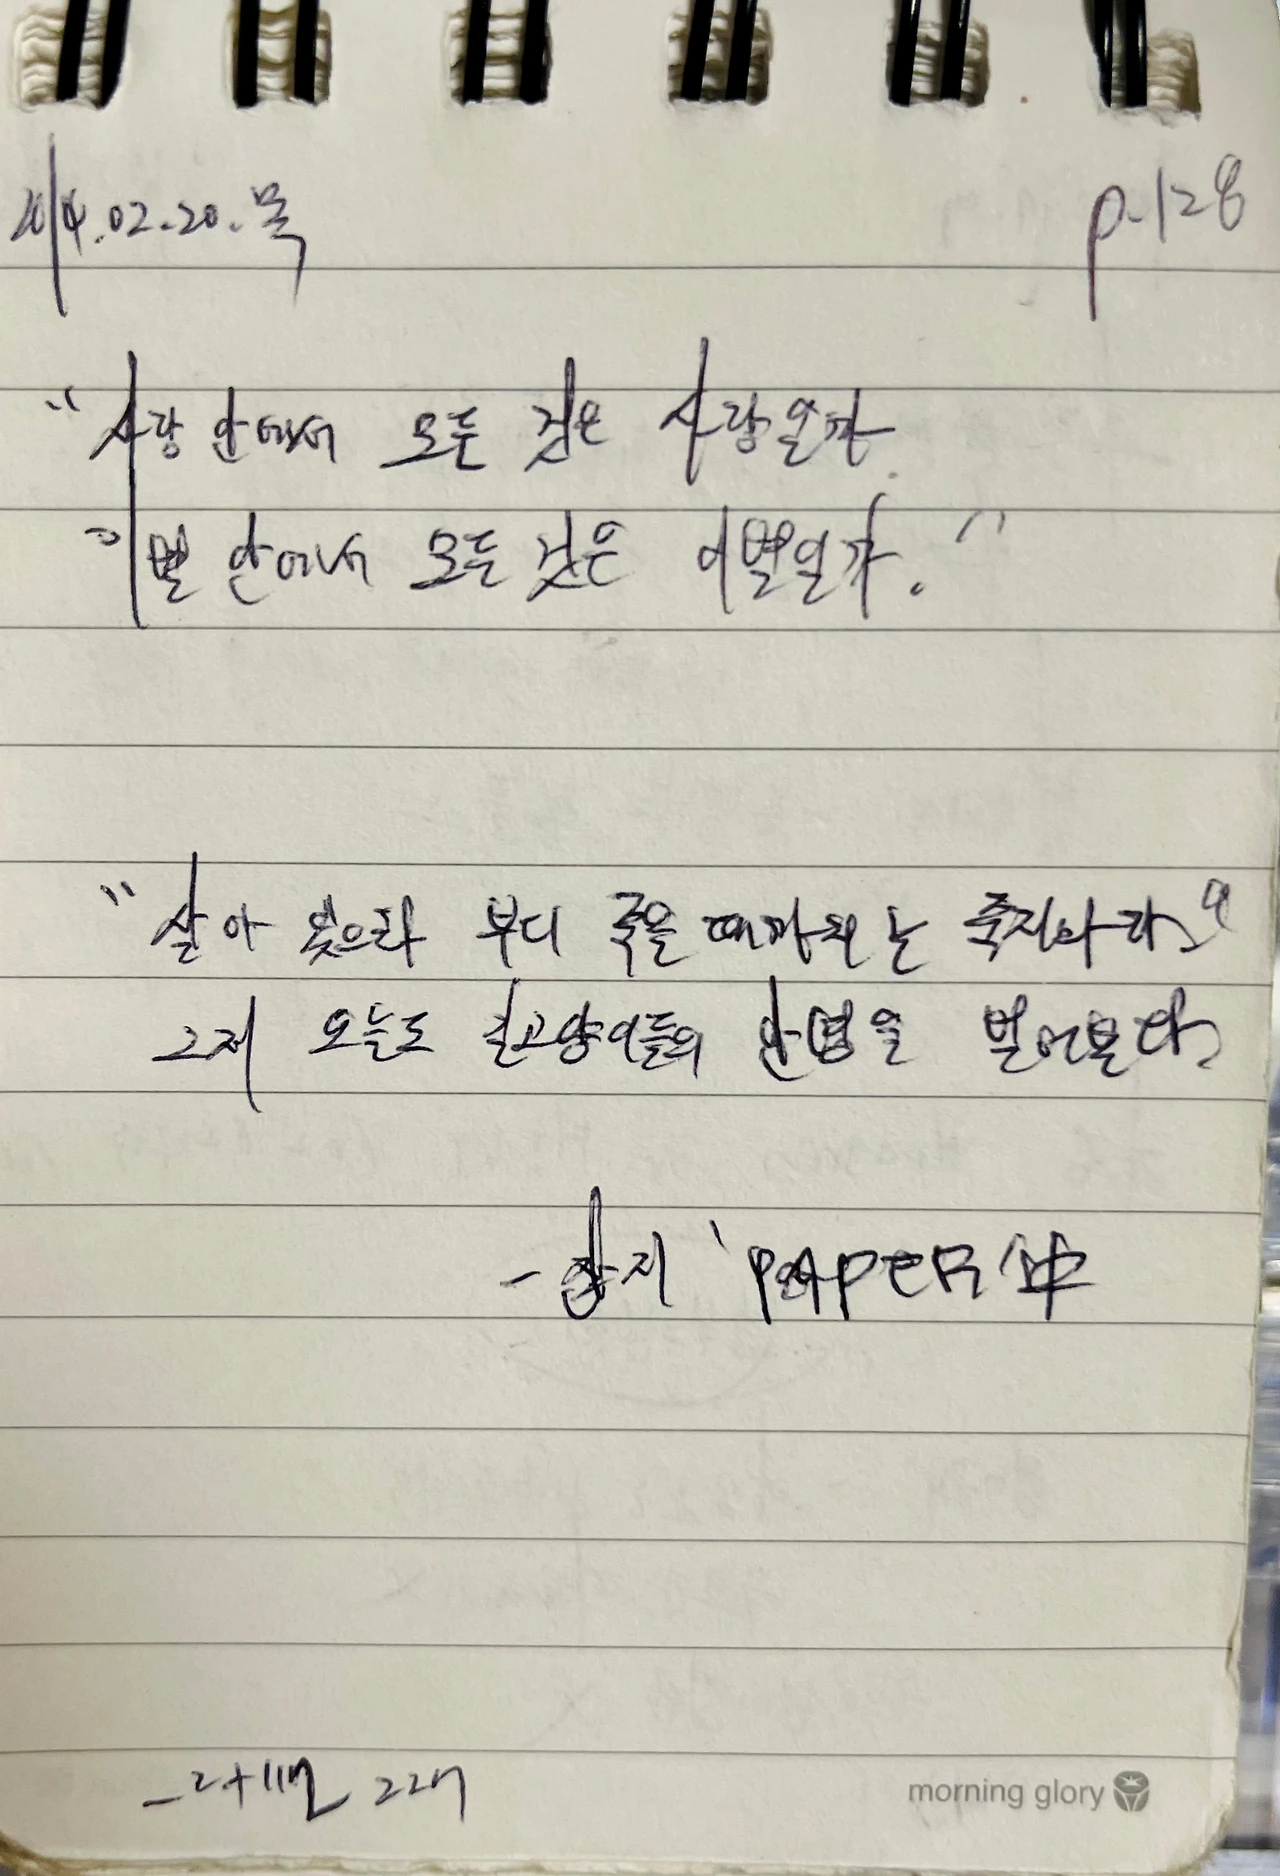 2014.02.20.목
p.128
"사랑 안에서 모든 것은 사랑일까
이별 안에서 모든 것은 이별일까."
"살아 있으라 부디 죽을 때까지는 죽지마라."
그저 오늘도 길고양이들의 안녕을 빌어본다.
- 잡지 'PAPER' 中
morning glory